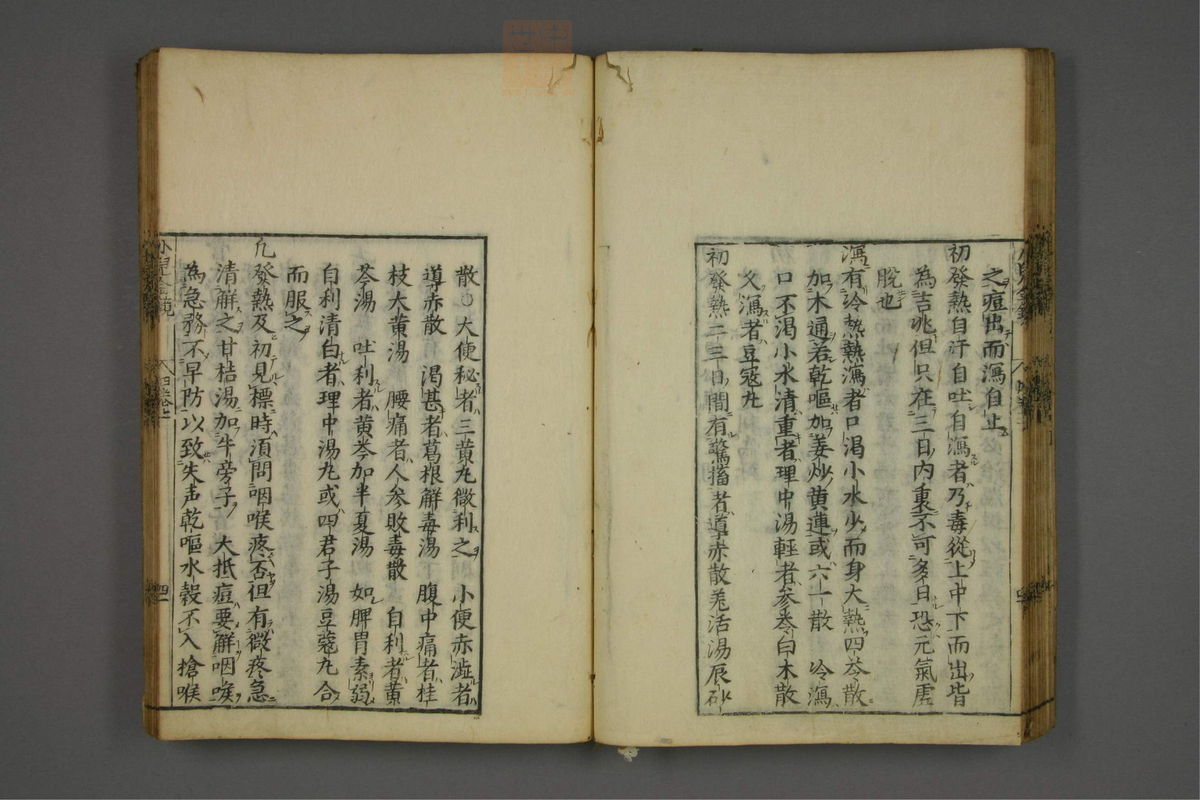 之痘出而瀉自止
初發熱自汗自吐自瀉者乃毒從上中下而出皆
為吉兆但只在三日内裏不可多日恐元氣虛
脫也
瀉有冷熱熱瀉者口渴小水少而身大熱四苓散
加木通若乾嘔加姜炒黄連或六一散　冷瀉
口不渴小水清重者理中湯輕者參苓白木散
久瀉者豆寇丸
初發熱二三日間有驚搐者導赤散羗活湯辰砂
散　大便秘者三黄丸微利之　小便赤澁者
導赤散　渴甚者葛根解毒湯　腹中痛者桂
枝大黄湯　腰痛者人参敗毒散　自利者黄
芩湯　吐利者黄芩加半夏湯　如脾胃素弱
自利清白者理中湯丸或四君子湯豆蔻丸合
而服之
凢發熱及初見標時湏問咽喉疼否但有微疼急
清解之甘桔湯加牛旁子　大抵痘要解咽喉
為急務不早防以致失声乾嘔水穀不入搶喉